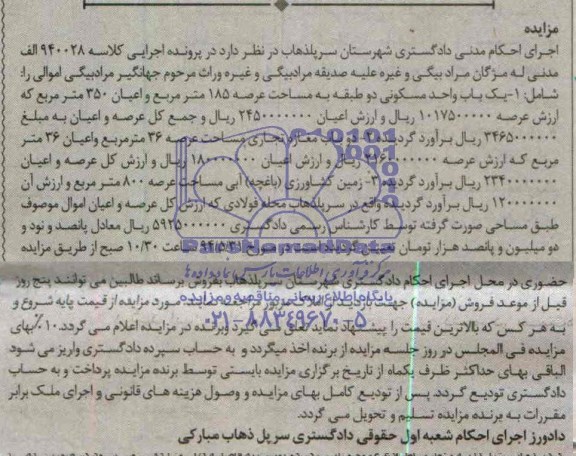 مزایده
اجرای احکام مدنی دادگستری شهرستان سرپلذهاب در نظر دارد در پرونده اجرایی کلاسه ۹۴۰۰۲۸ الف
مدنی له مژگان مرادبیگی و غیره علیه صدیقه مرادبیگی و غیره وراث مرحوم جهانگیر مرادبیگی اموالی را:
شامل: ۱- یک باب واحد مسکونی دو طبقه به مساحت عرصه ۱۸۵ متر مربع و اعیان ۳۵۰ متر مربع که
ارزش عرصه ۱۰۱۷۵۰۰۰۰۰ ریال و ارزش اعیان ۲۴۵۰۰۰۰۰۰۰ ریال و جمع کل عرصه و اعیان به مبلغ
۳۴۶۵۰۰۰۰۰۰ ریال برآورد گردید مغازه تجاری مساحت عرصه ۳۶ مترمربع واعیان ۳۶ متر
مربع که ارزش عرصه ریال و ارزش اعیان ۱۸۰۰۰۰۰۰۰ ریال و ارزش کل عرصه و اعیان
۲۳۴۰۰۰۰۰۰۰ ریال برآورد گردید ۳- زمین کشاورزی (باغچه) آبی مساحت عرصه ۸۰۰ متر مربع و ارزش آن
۱۲۰۰۰۰۰۰۰ ریال برآورد گردیده واقع در سرپلذهاب محله فولادی که ارزش کل عرصه و اعیان اموال موصوف
طبق مساحی صورت گرفته توسط کارشناس رسمی دادگستری ۵۹۲۵۰۰۰۰۰۰ ریال معادل پانصد و نود و
دو میلیون و پانصد هزار تومان ساعت ۱۰/۳۰ صبح از طریق مزایده
حضوری در محل اجرای احکام دادگستری شهرستان سرپلذهاب بفروش برساند طالبین می توانند پنج روز
قبل از موعد فروش (مزایده) جهت مورد مزایده از قیمت پایه شروع و
به هر کس که بالاترین قیمت را پیشنهاد نماید برنده در مزایده اعلام می گردد. ۱۰٪ بهای
مزایده فی المجلس در روز جلسه مزایده از برنده اخذ میگردد و به حساب سپرده دادگستری واریز می شود
الباقی بهای حداکثر ظرف یکماه از تاریخ برگزاری مزایده بایستی توسط برنده مزایده پرداخت و به حساب
دادگستری تودیع گردد. پس از تودیع کامل بهای مزایده و وصول هزینه های قانونی و اجرای ملک برابر
مقررات به برنده مزایده تسلیم و تحویل می گردد.
دادورز اجرای احکام شعبه اول حقوقی دادگستری سرپل ذهاب مبارکی
ParsNamadData
مرکز فرآوری اطلاعات پارس نماد داده ها
پایگاه اطلاع رسانی مناقصه و مزایده
۰۲۱-۸۸۳۴۹۶۷۰-۵